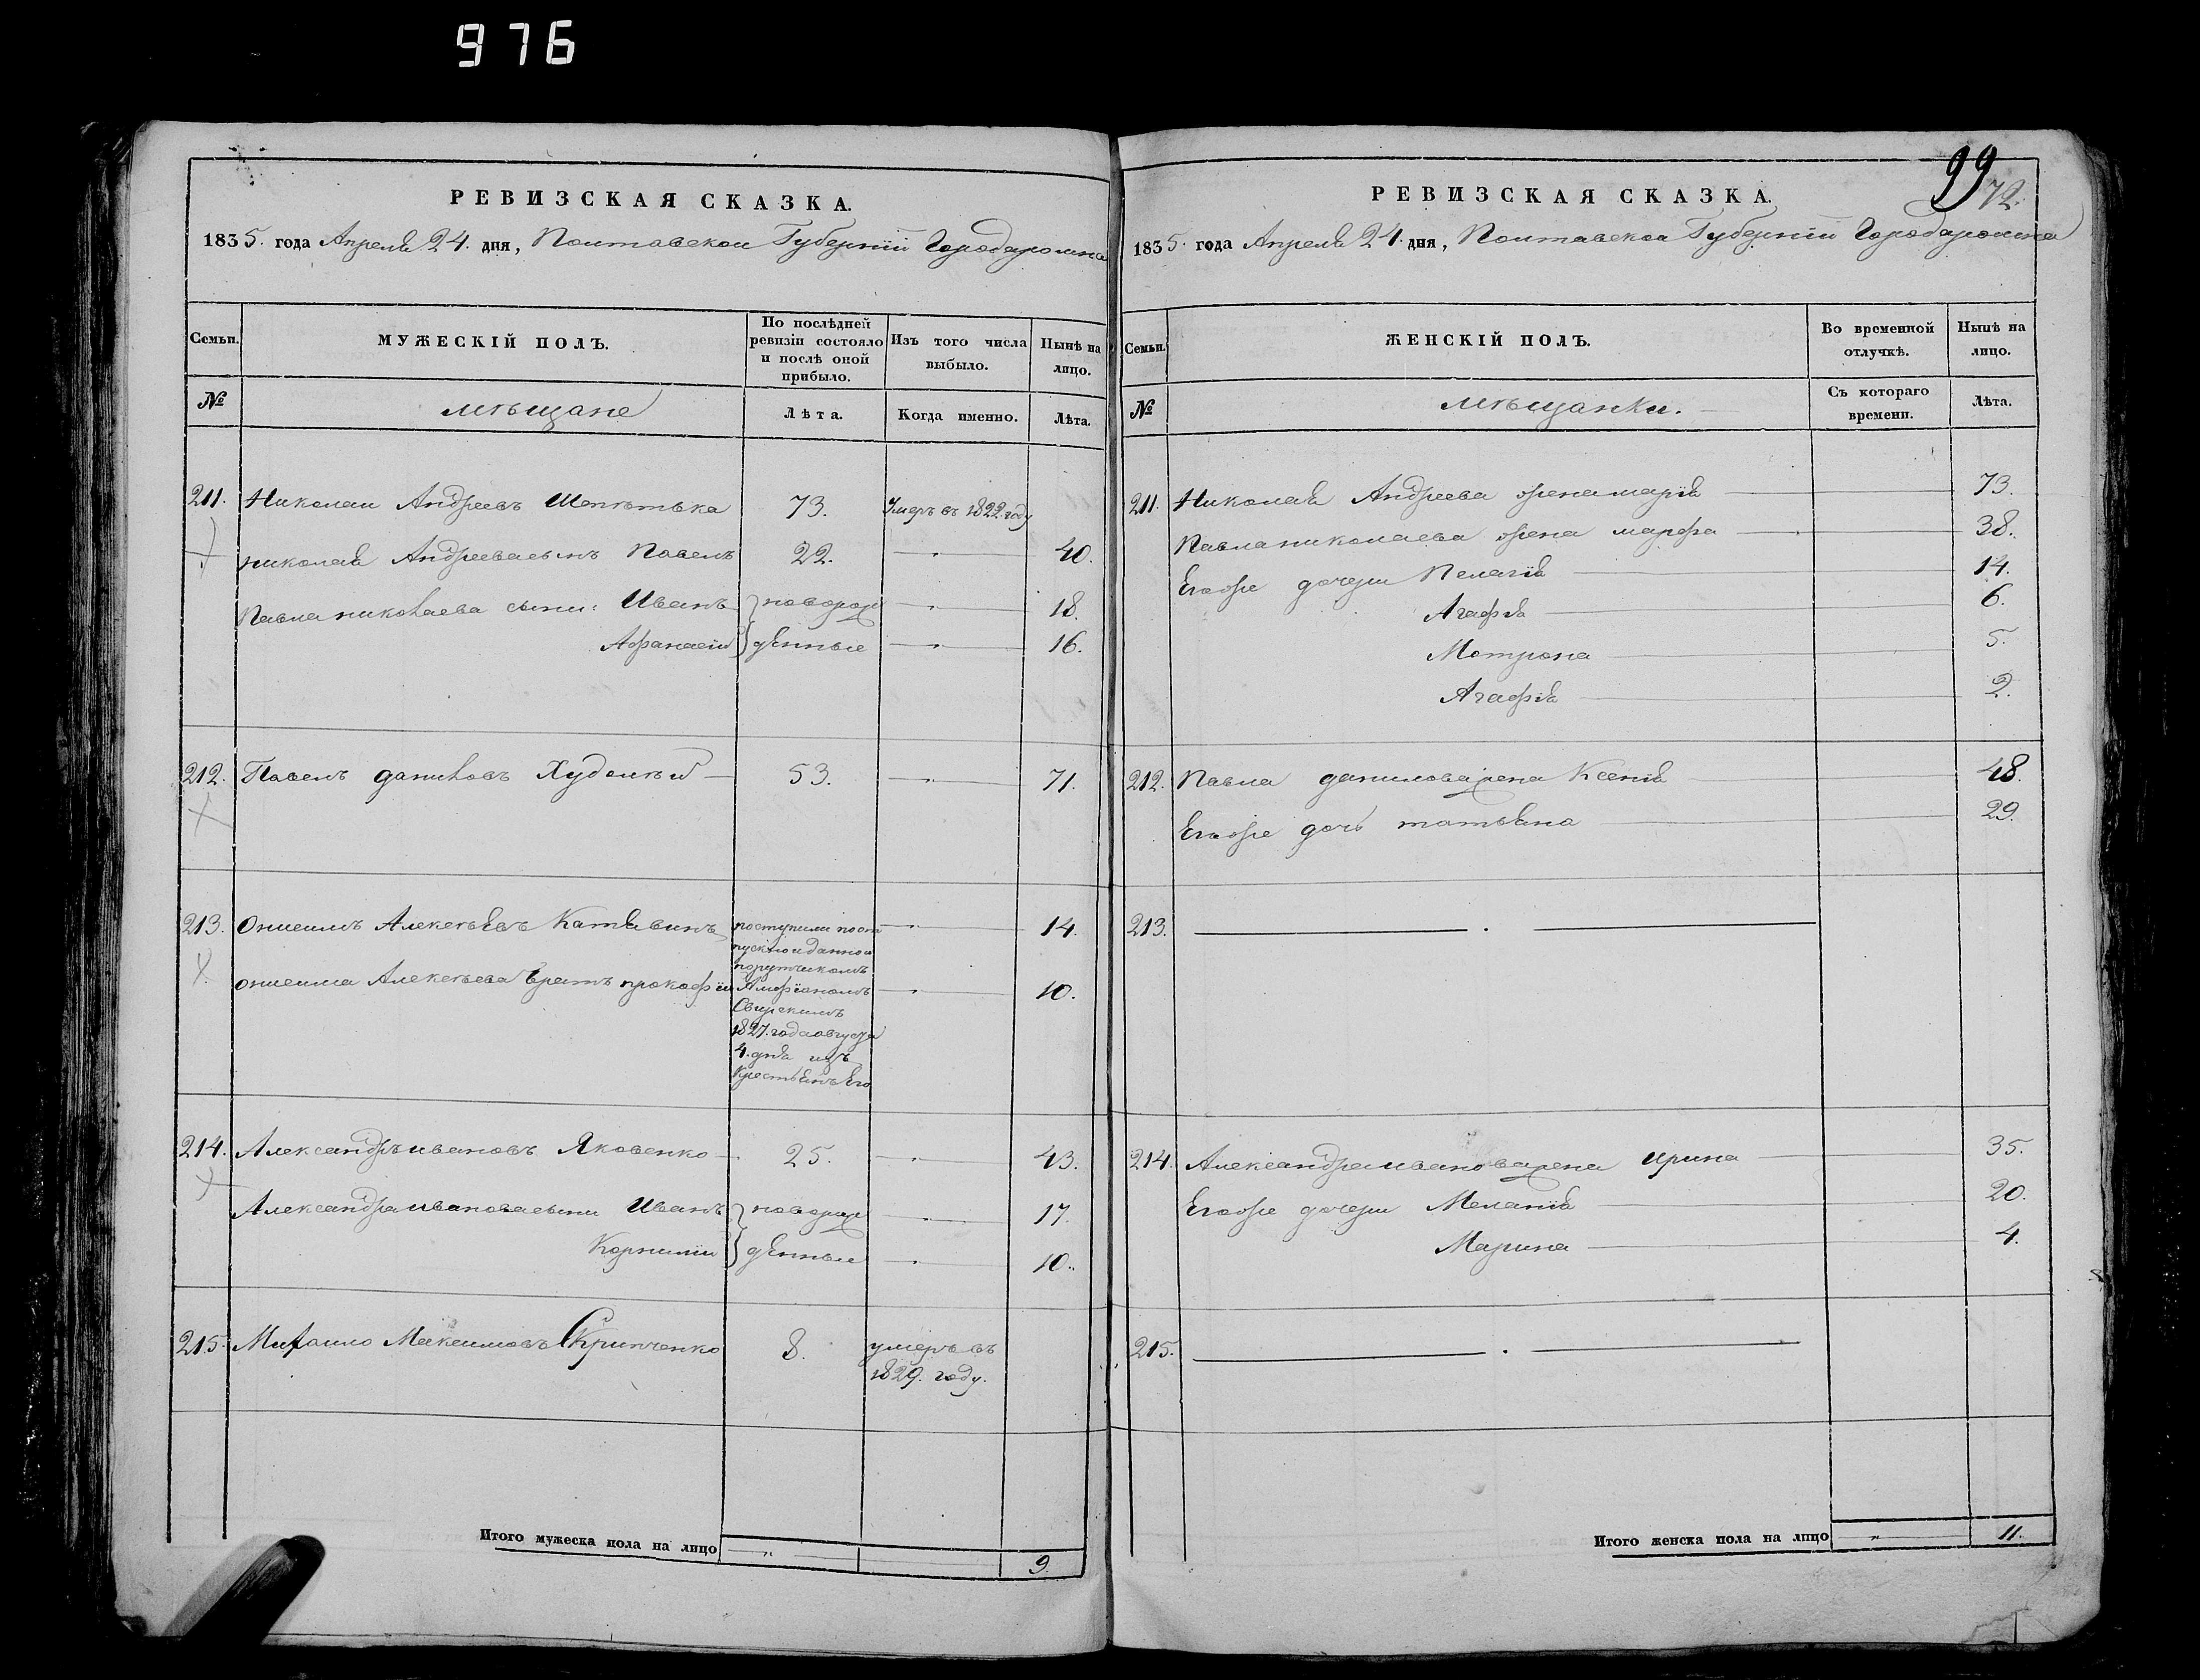 976
РЕВИЗСКАЯ СКАЗКА.
1835. года Апреля 24. дня, Полтавской Губернїи Города
Семьи.
МУЖЕСКІЙ ПОЛЪ.
По послѣдней ревизіи состояло и послѣ оной прибыло.
Изъ того числа выбыло.
Нынѣ на лицо.
№
мѣщане
Лѣта.
Когда именно.
Лѣта.
211. Николай Андреевъ 73. Умеръ въ 1822. году
николая Андреева сынъ Павелъ 22. " 40.
Павла николаева сыны: Иванъ } новорож " 18.
Афанасїй } денные " 16.
212. Павелъ даниловъ Худолѣй 53. " 71.
213. Онисимъ Алексѣевъ поступили по от " 14.
пускной данной
порутчикомъ
онисима Алексѣева братъ прокофїй Амфїаномъ " 10.
Свирскимъ
1827. года августа
4. дня изъ
Крестьянъ Его
214. Александръ ивановъ Яковенко 25. " 43.
Александра иванова сыни Иванъ } новорож " 17.
Корнилїй } денные " 10.
215. Михаило Максимовъ 8. умеръ въ
1829. году.
Итого мужеска пола на лицо " 9.
99
72.
РЕВИЗСКАЯ СКАЗКА.
1835. года Апреля 24. дня, Полтавской Губернїи Города
Семьи.
ЖЕНСКІЙ ПОЛЪ.
Во временной отлучкѣ.
Нынѣ на лицо.
№
мѣщанки.
Съ котораго времени.
Лѣта.
211. Николая Андреева жена марїя 73.
Павла николаева жена марфа 38.
Егоже дочери Пелагїя 14.
Агафїя 6.
Мотрона 5.
Агафїя 2.
212. Павла данилова жена Ксенїя 48.
Егоже дочь татьяна 29.
213.
214. Александра иванова жена ирина 35.
Егоже дочери Меланїя 20.
Марина 4.
215.
Итого женска пола на лицо " 11.